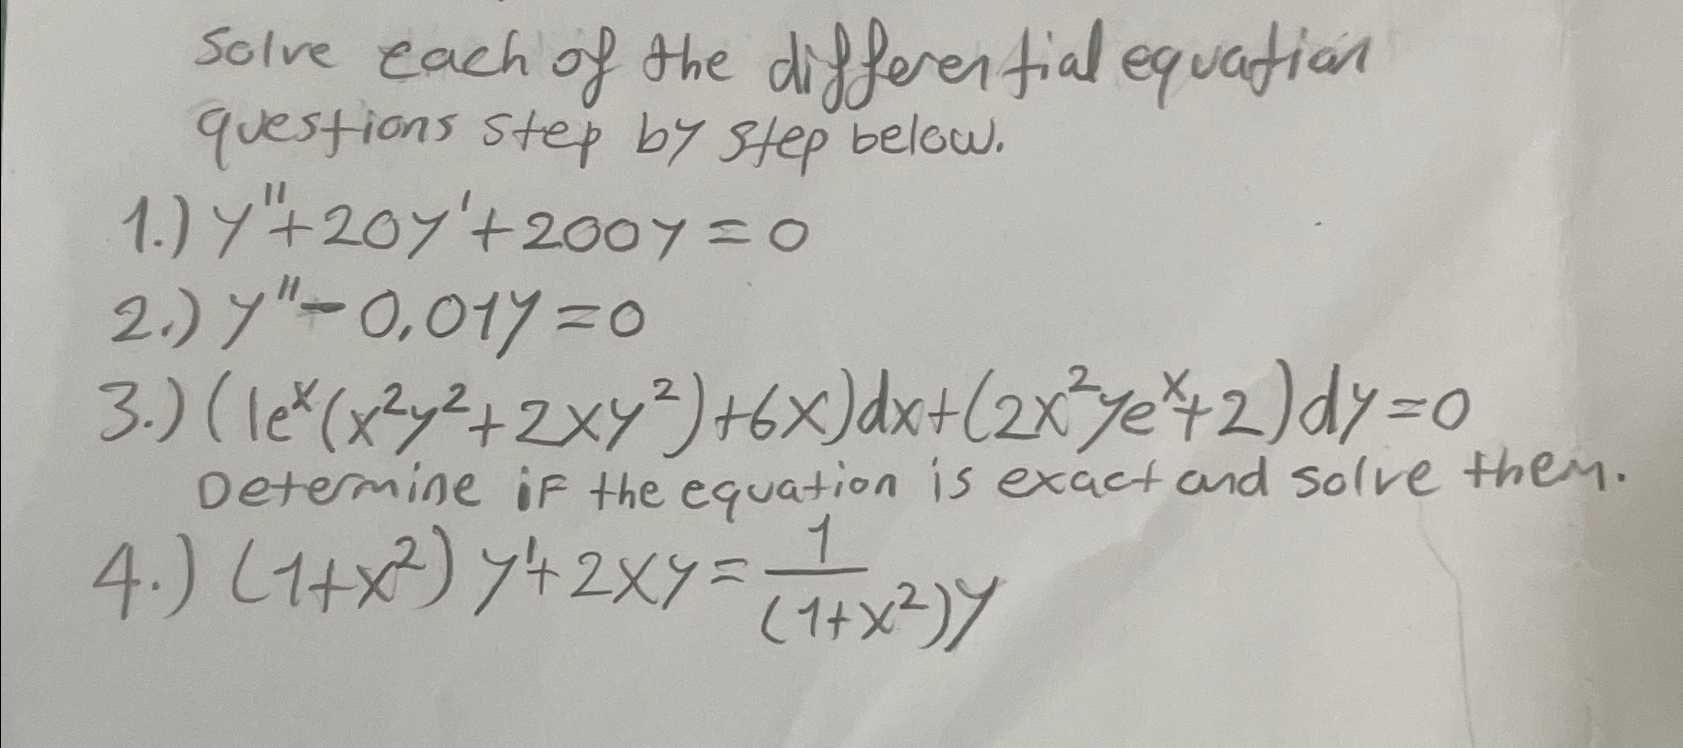 Solve each of the differential equation
questions step by step below.
1.) y''+20y'+200y=0
2.) y''-0,01y=0
3.) (1e^x(x²y²+2xy²)+6x)dx+(2x²ye^x+2)dy=0
Determine if the equation is exact and solve them.
4.) (1+x²)y'+2xy=1/(1+x²)y